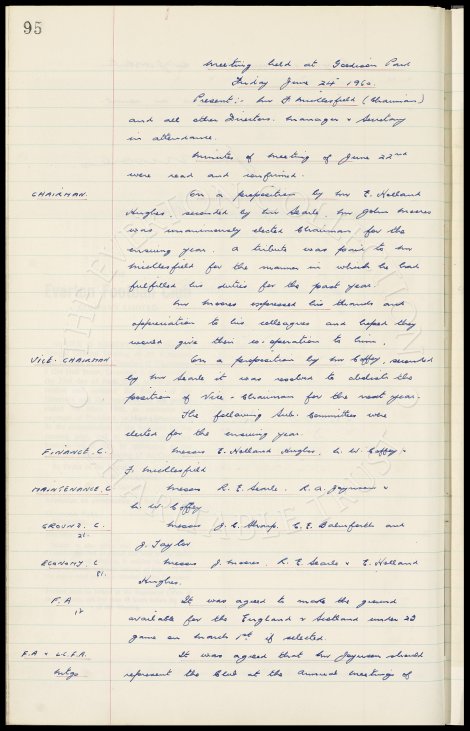 95
Meeting held at Goodison Park
Friday June 24th 1960.
Present:- Mr F Micklesfield (Chairman)
and all other Directors. Manager & Secretary
in attendance.
Minutes of Meeting of June 22nd
were read and confirmed.
CHAIRMAN. On a proposition by Mr E. Holland
Hughes, seconded by Mr Searle, Mr John Moores
was unanimously elected Chairman for the
ensuing year. A tribute was paid to Mr
Micklesfield for the manner in which he had
fulfilled his duties for the past year.
Mr Moores expressed his thanks and
appreciation to his colleagues and hoped they
would give their co-operation to him.
VICE. CHAIRMAN On a proposition by Mr Coffey, seconded
by Mr Searle it was resolved to abolish the
position of Vice-Chairman for the next year.
The following Sub. Committees were
elected for the ensuing year.
FINANCE. C. Messrs E. Holland Hughes, C. W. Coffey &
F. Micklesfield
MAINTENANCE. C Messrs R. E. Searle. R. A. Joynson &
C. W. Coffey
GROUND. C. Messrs J. C. Sharp, C. E. Balmforth and
21.
J. Taylor
ECONOMY. C Messrs J. Moores. R. E. Searle & E. Holland
81.
Hughes.
F.A It was agreed to make the ground
12
available for the England v Scotland under 23
game on March 1st if selected.
F.A & L.C.F.A. It was agreed that Mr Joynson should
Mtgs represent the Club at the annual meetings of